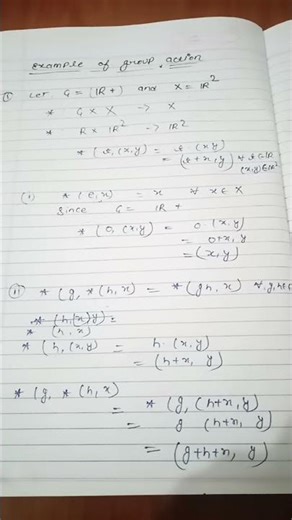 Example of group action
① Let G = (IR +) and X = IR²
* G × X → X
* R × IR² → IR²
* (t, (x,y) = t · (x,y)
= (t+x, y) ∀ t ∈ IR
(x,y) ∈ IR²
(i) * (e, x) = x ∀ x ∈ X
Since G = IR +
* (0, (x,y) = 0 · (x,y)
= 0+x, y
= (x, y)
(ii) * (g, * (h, x) = * (gh, x) ∀ g, h ∈ G
* (h, (x,y) = h · (x, y)
= (h+x, y)
* (g, * (h, x)
= * (g, (h+x, y)
= g (h+x, y)
= (g+h+x, y)